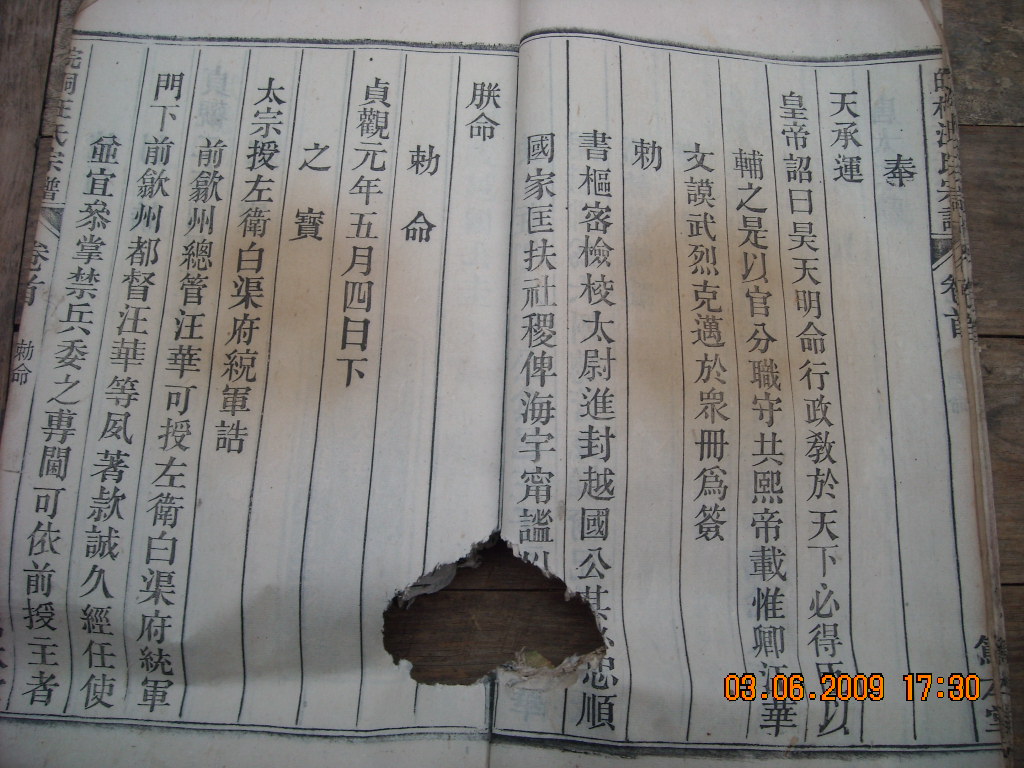 奉
天承運
皇帝詔曰昊天明命行政教於天下必得 以
輔之是以官分職守共熙帝載惟卿汪華
文謨武烈克邁於衆冊爲簽
勅
書樞密檢校太尉進封越國公其 忠順
國家匡扶社稷俾海宇甯謐
朕命
勅命
貞觀元年五月四日下
之寶
太宗授左衛白渠府統軍誥
前歙州總管汪華可授左衛白渠府統軍
門下前歙州都督汪華等夙著款誠久經任使
並宜叅掌禁兵委之専閫可依前授王者
汪氏宗譜 卷首 勅命
卷首
03.06.2009 17:30